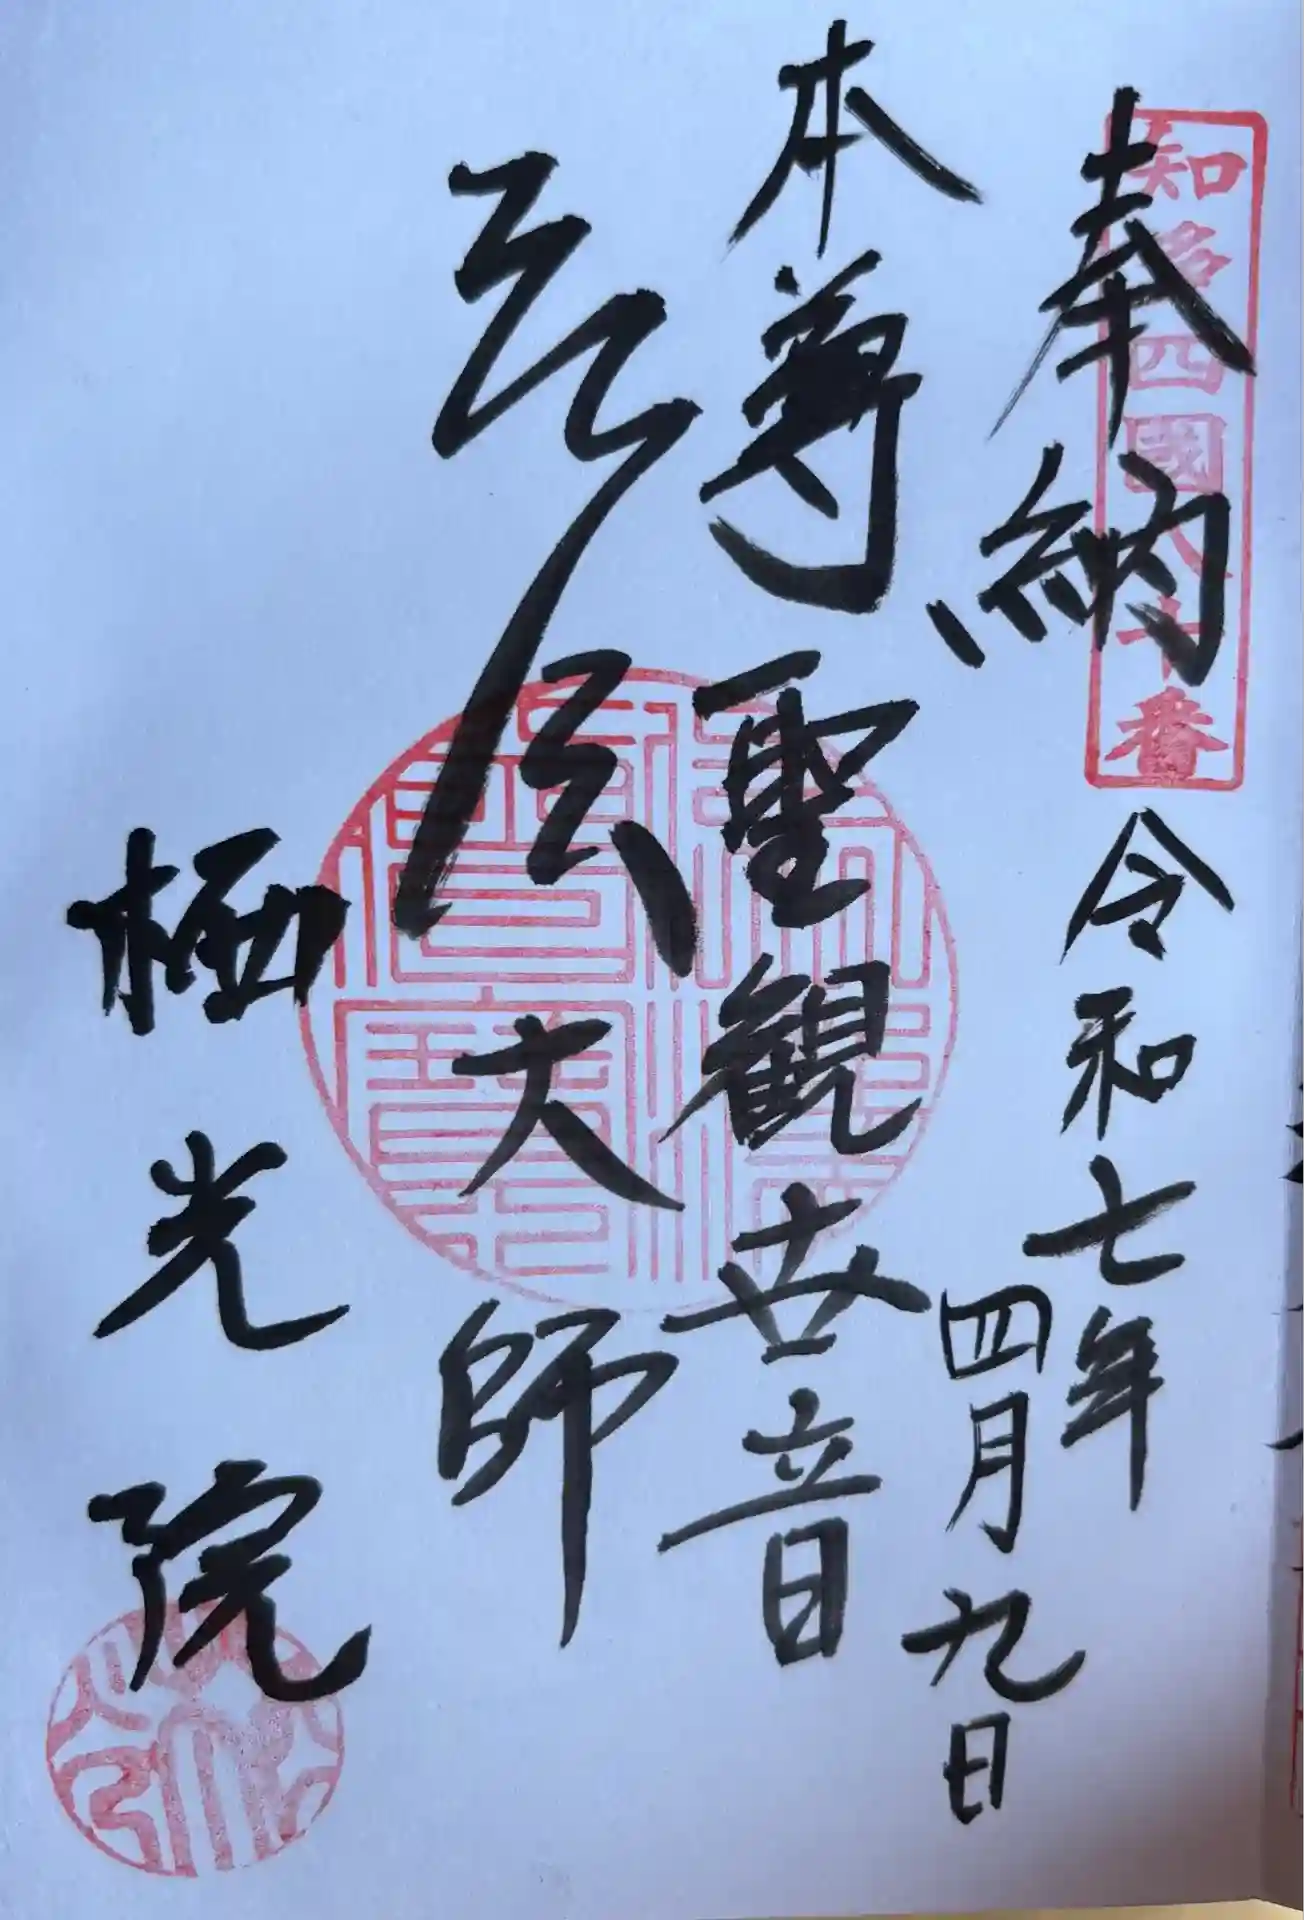 知多四國八十番
奉納
令和七年
四月九日
本尊聖観世音
弘法大師
栖光院